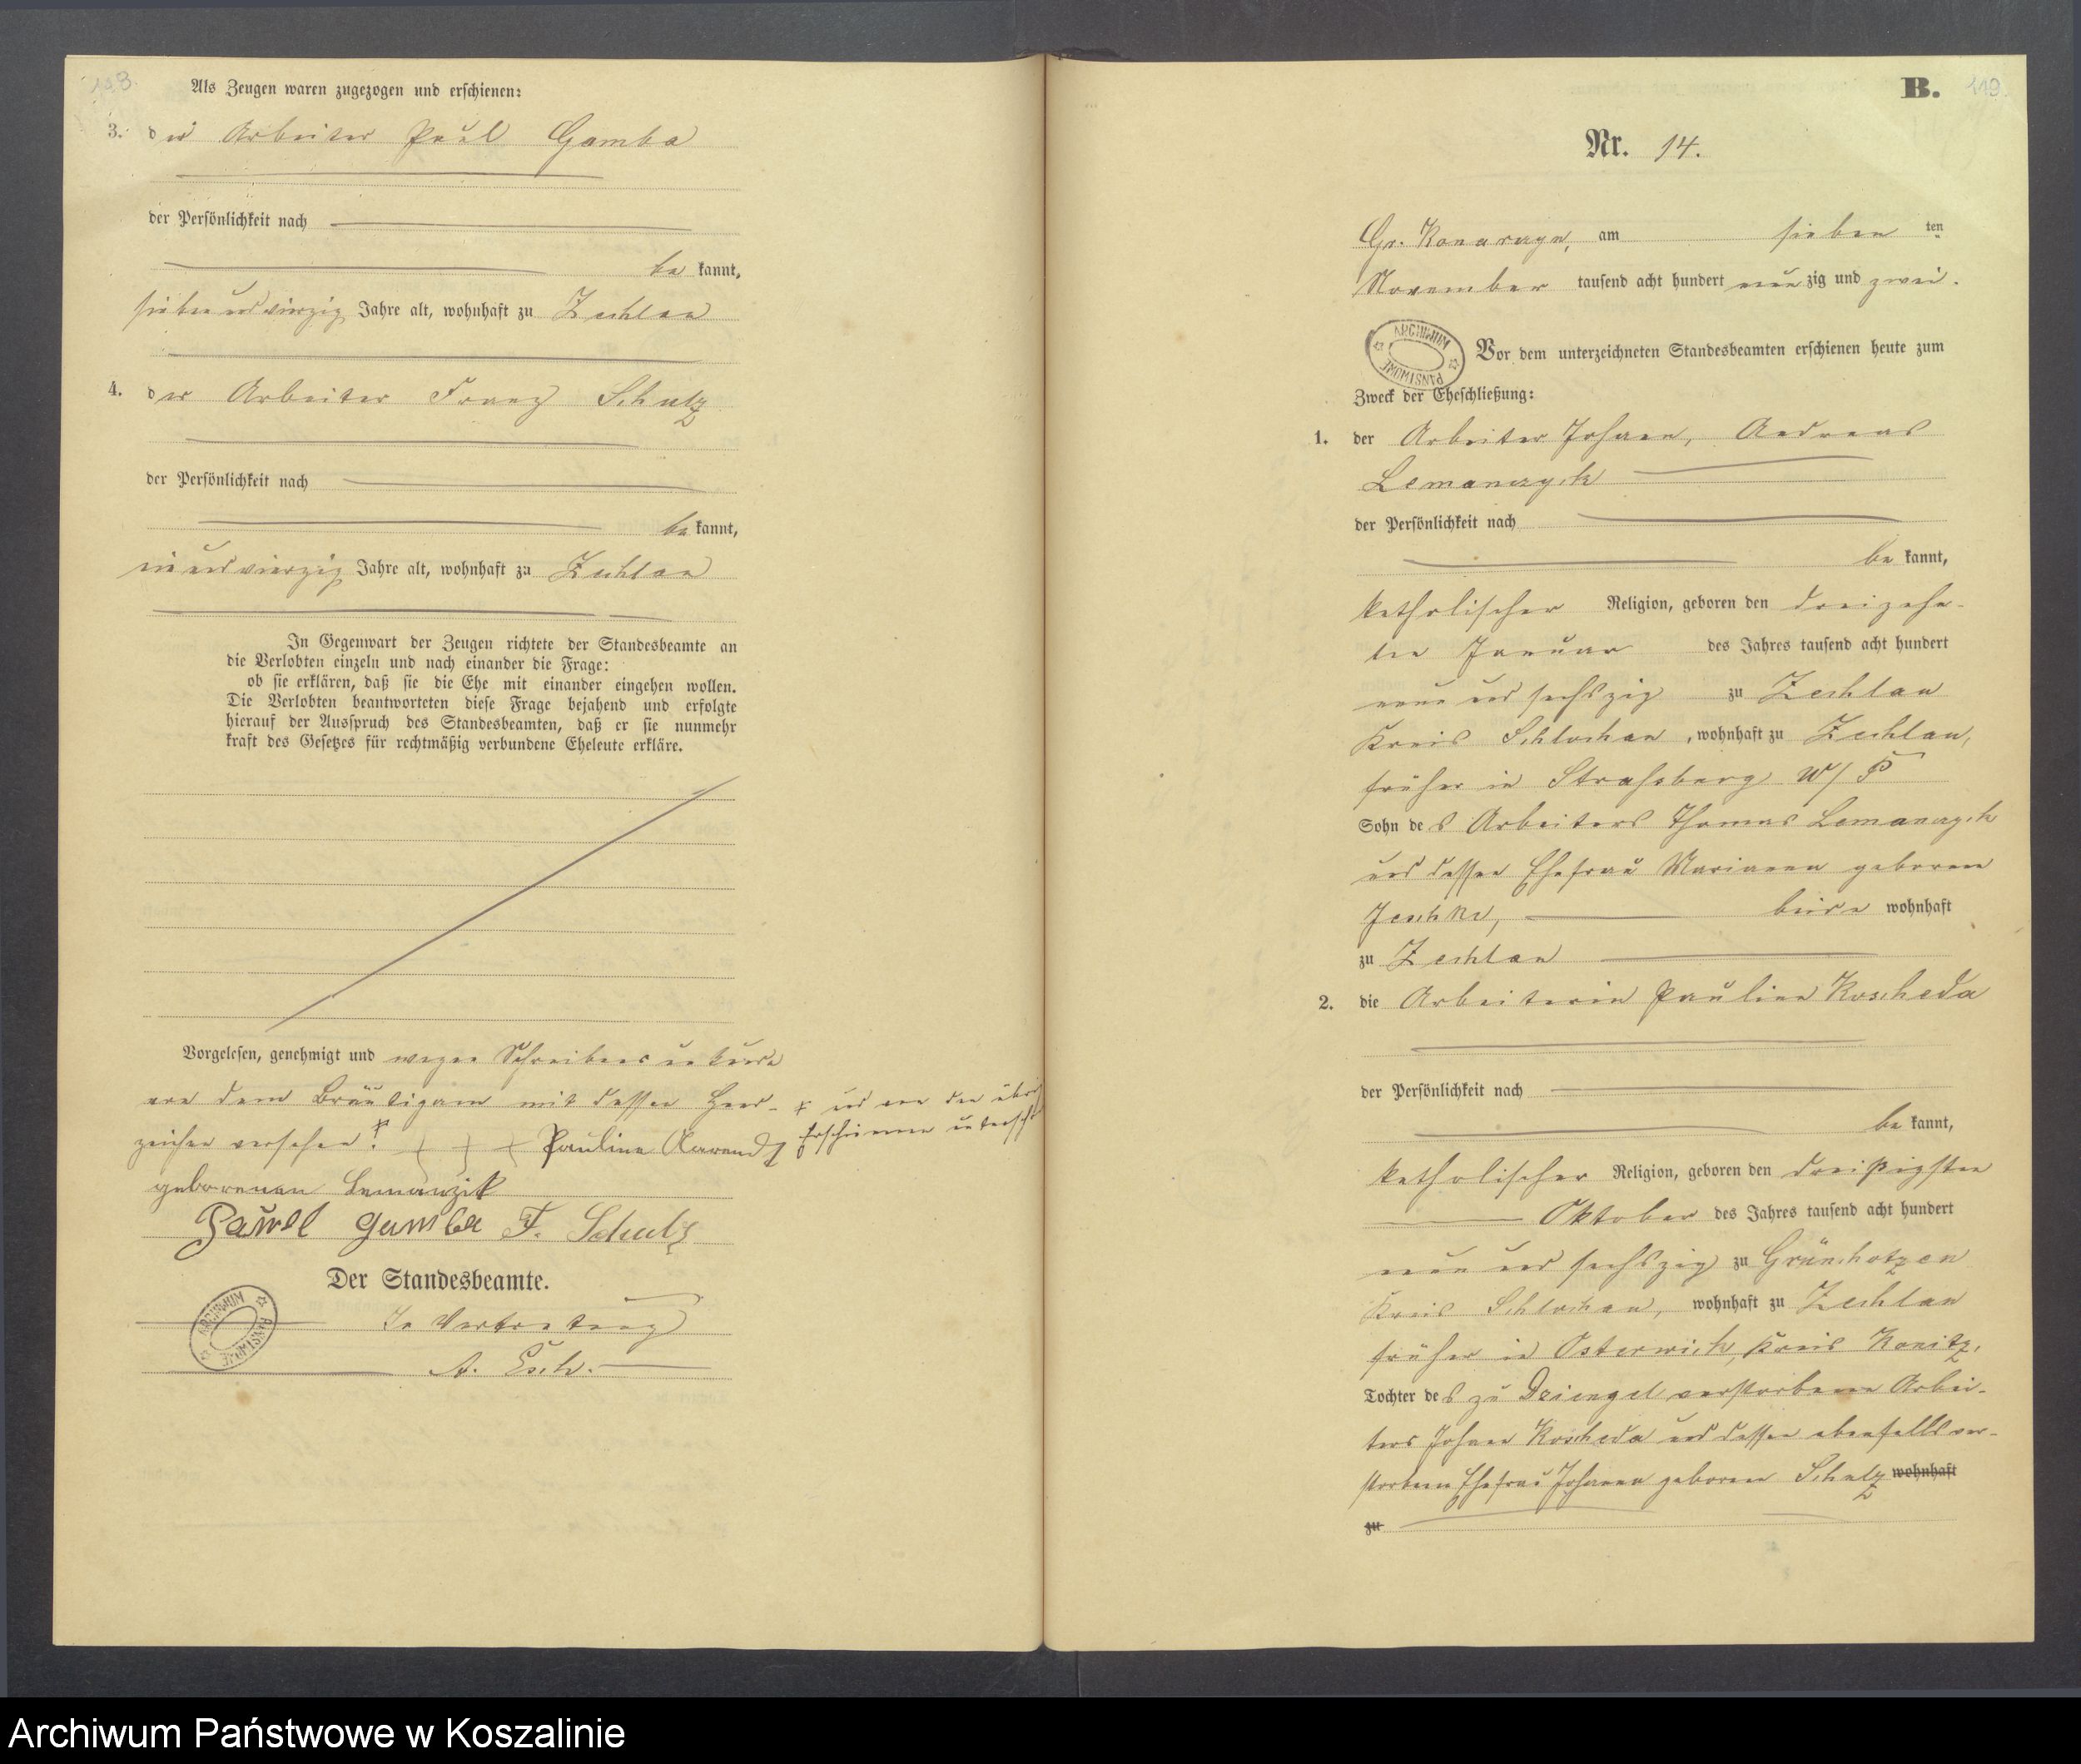 Als Zeugen waren zugezogen und erschienen:
3. der Arbeiter Paul Gamba
der Persönlichkeit nach
bekannt,
sieben und vierzig Jahre alt, wohnhaft zu Zechlau
4. der Arbeiter Franz Schulz
der Persönlichkeit nach
bekannt,
ein und vierzig Jahre alt, wohnhaft zu Zechlau
In Gegenwart der Zeugen richtete der Standesbeamte an
die Verlobten einzeln und nach einander die Frage:
ob sie erklären, daß sie die Ehe mit einander eingehen wollen.
Die Verlobten beantworteten diese Frage bejahend und erfolgte
hierauf der Ausspruch des Standesbeamten, daß er sie nunmehr
kraft des Gesetzes für rechtmäßig verbundene Eheleute erkläre.
Vorgelesen, genehmigt und wegen Schreibensunkunde
von dem Bräutigam mit dessen Hand- + und von den übrig
zeichen versehen. + + + + Pauline Erschienenen untersch
geborenen Lemanzik
Pawel Gamba F. Schulz
Der Standesbeamte.
In Vertretung
A. Esch.
ARCHIWUM PAŃSTWOWE
B. 119
Nr. 14.
Gr. Konarczyn, am sieben ten
November tausend acht hundert neunzig und zwei.
ARCHIWUM PAŃSTWOWE
Vor dem unterzeichneten Standesbeamten erschienen heute zum
Zweck der Eheschließung:
1. der Arbeiter Johann, Andreas
Lemanczyck
der Persönlichkeit nach
bekannt,
katholischer Religion, geboren den dreizehn-
ten Januar des Jahres tausend acht hundert
neun und sechszig zu Zechlau
Kreis Schlochau, wohnhaft zu Zechlau,
früher in Strasburg W/P
Sohn des Arbeiters Thomas Lemanczyck
und dessen Ehefrau Marianna geborene
Jeschke, beide wohnhaft
zu Zechlau
2. die Arbeiterin Pauline Koscheda
der Persönlichkeit nach
bekannt,
katholischer Religion, geboren den dreißigsten
Oktober des Jahres tausend acht hundert
neun und sechszig zu Grünchotzen
Kreis Schlochau, wohnhaft zu Zechlau
früher in Osterwick, Kreis Konitz,
Tochter des zu Dziengel verstorbenen Arbei-
ters Johann Koscheda und dessen ebenfalls ver-
storbenen Ehefrau Johanna geborene Schulz wohnhaft
zu
Archiwum Państwowe w Koszalinie